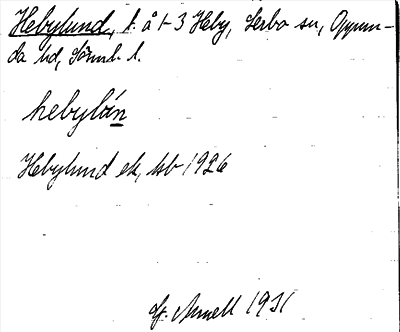 Hebylund, t. å 1-3 Heby, Lerbo sn, Oppun-
da hd, Södml. l.
hebylún
Hebylund ek, hsb 1926
Gf. Arnell 1931